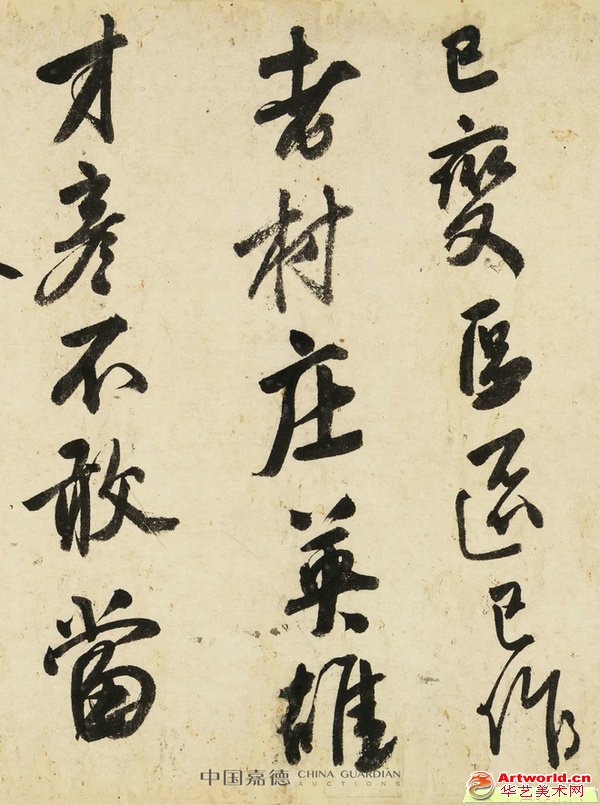 已變還已作
老村庄英雄
才彥不敢當
中国嘉德 CHINA GUARDIAN
AUCTIONS
Artworld.cn
华艺美术网